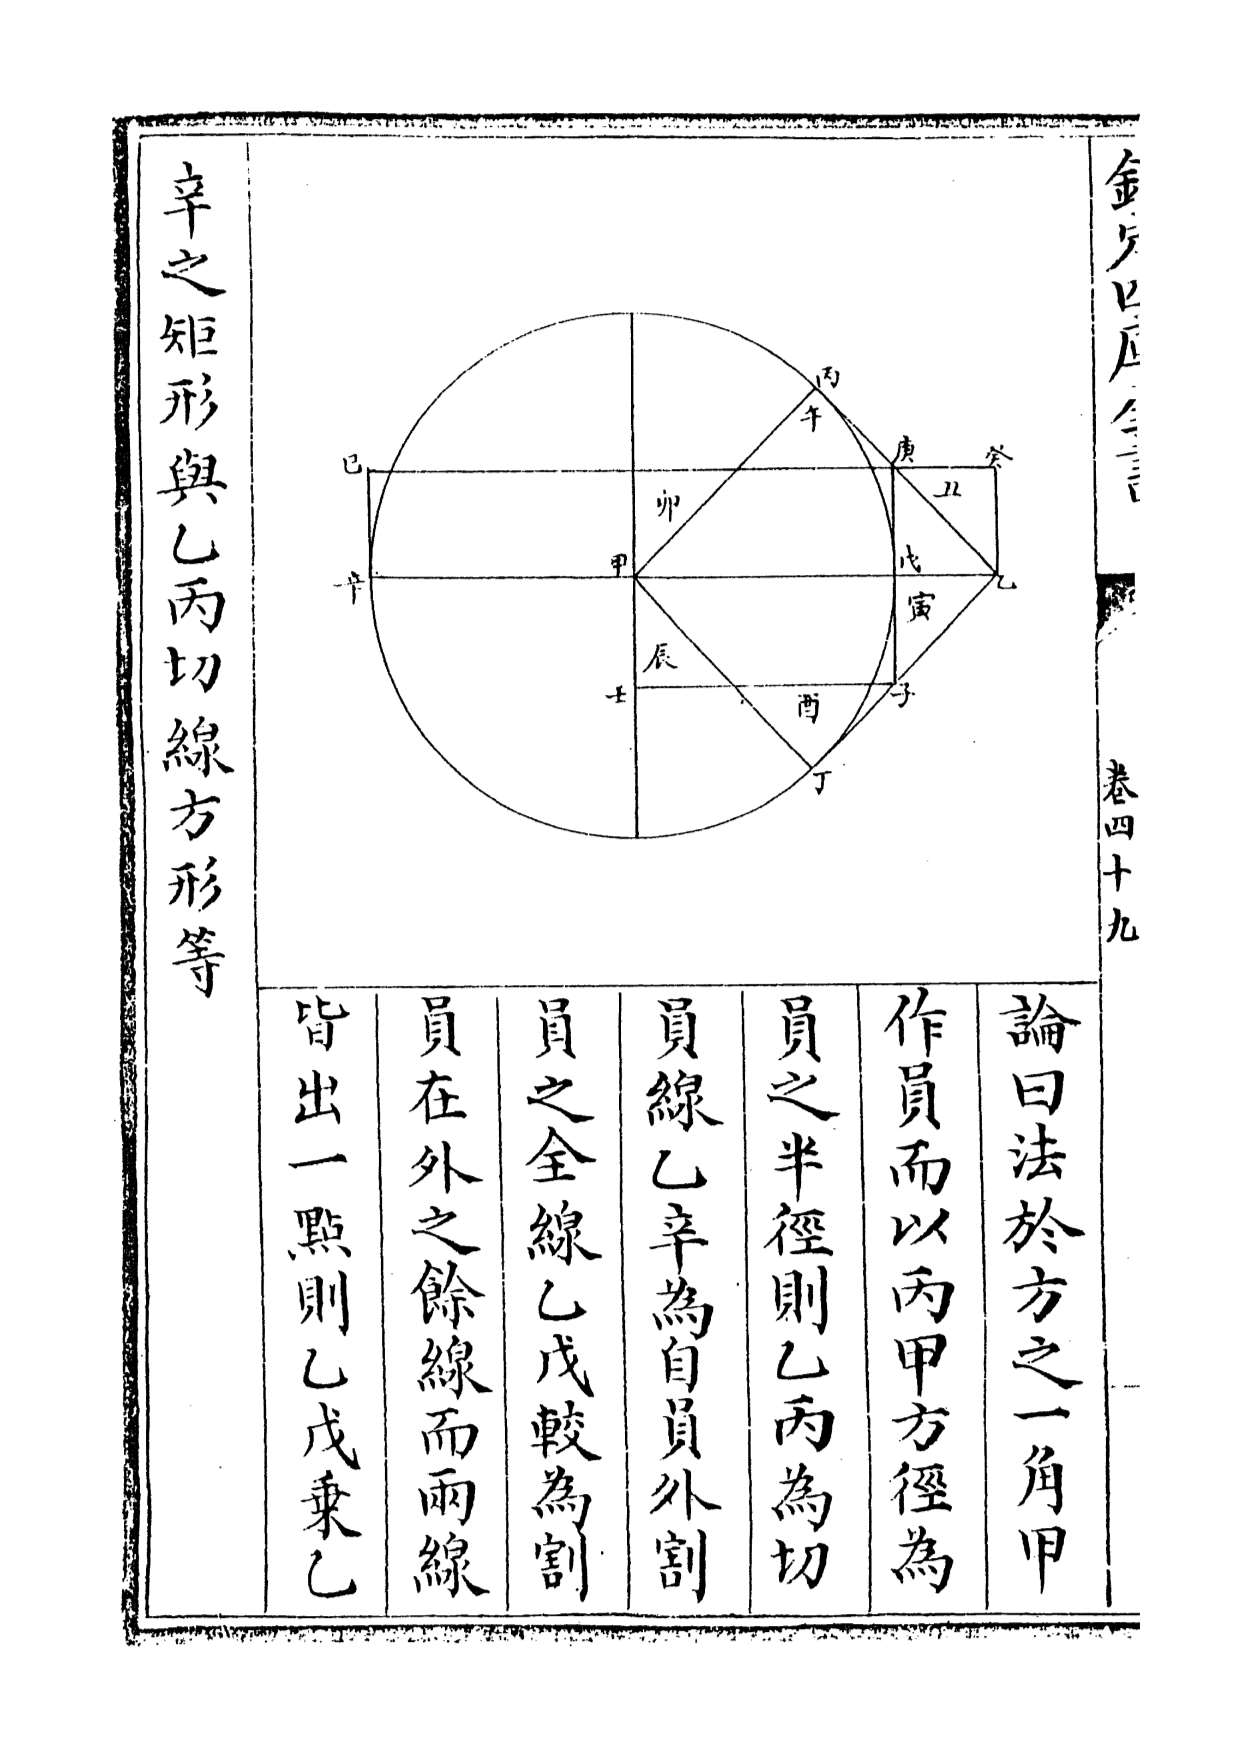 欽定四庫全書
卷四十九
論曰法於方之一角甲
作員而以丙甲方徑為
員之半徑則乙丙為切
員線乙辛為自員外割
員之全線乙戊較為割
員在外之餘線而兩線
皆出一點則乙戊乗乙
辛之矩形與乙丙切線方形等
丙
午
庚
癸
丑
巳
卯
甲
戊
乙
辛
寅
辰
壬
子
酉
丁